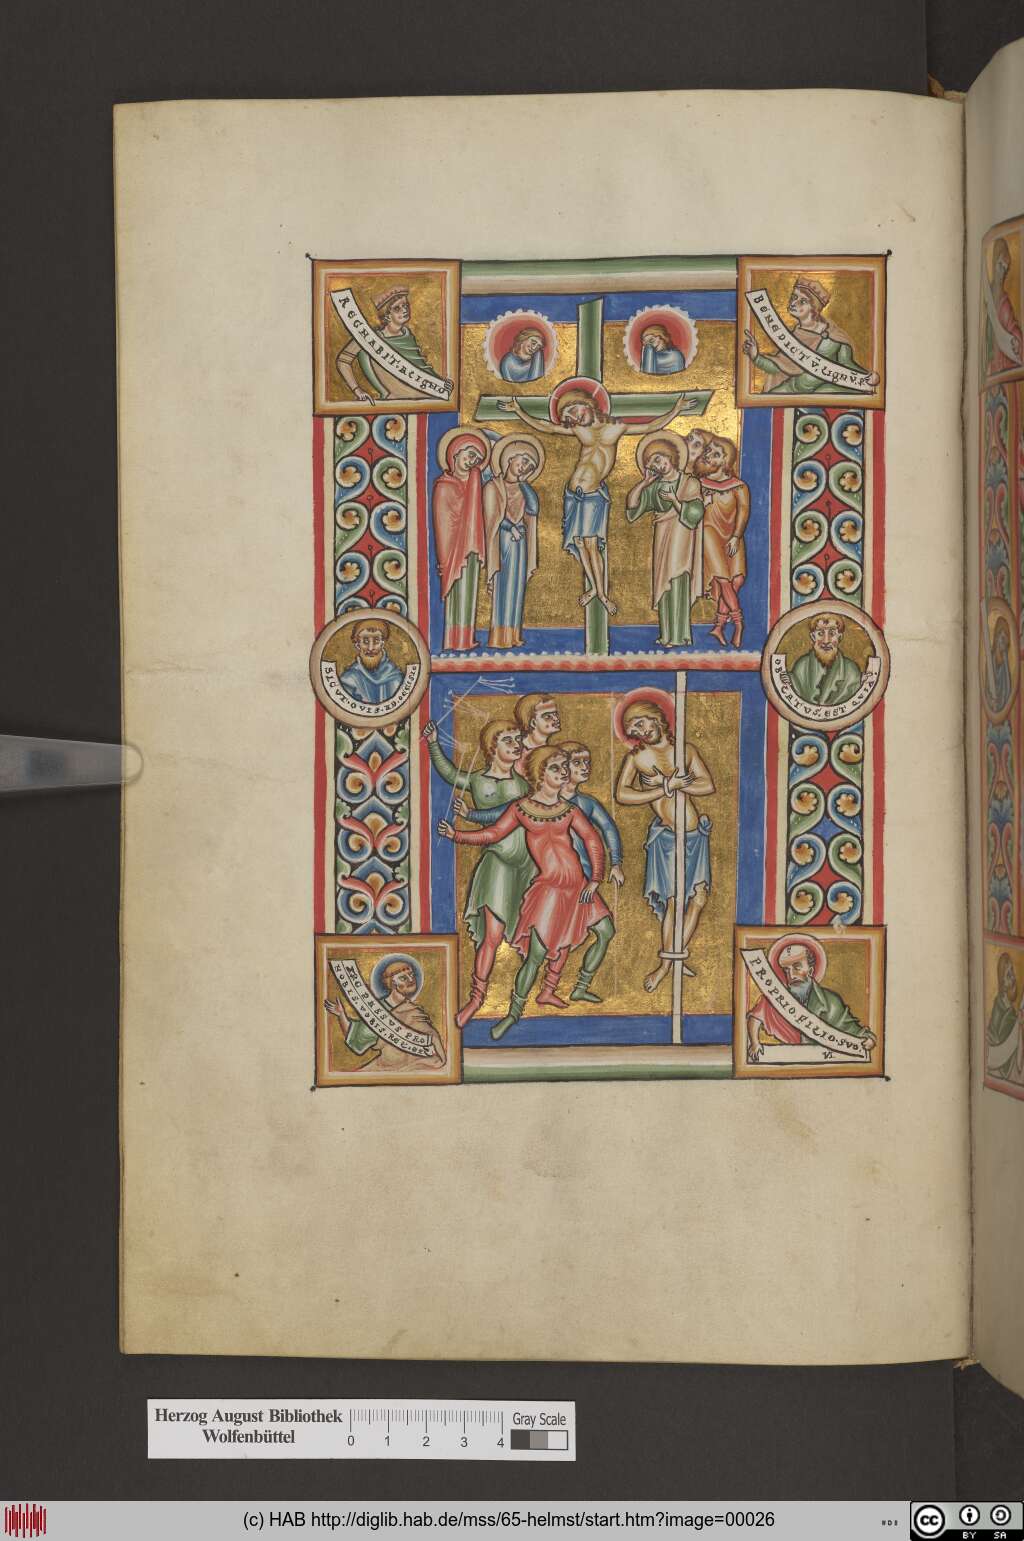 REGNABIT·A LIGNO
BENEDICTV̄·LIGNV̄·P
SICVT·OVIS·AD·OCCISIO
OBLATVS·EST QVIA
XPC PASSVS PRO
NOBIS·VOBIS·REL·
PROPRIO·FILIO·SVO·
Herzog August Bibliothek
Wolfenbüttel
0 1 2 3 4
Gray Scale
(c) HAB http://diglib.hab.de/mss/65-helmst/start.htm?image=00026
cc BY SA